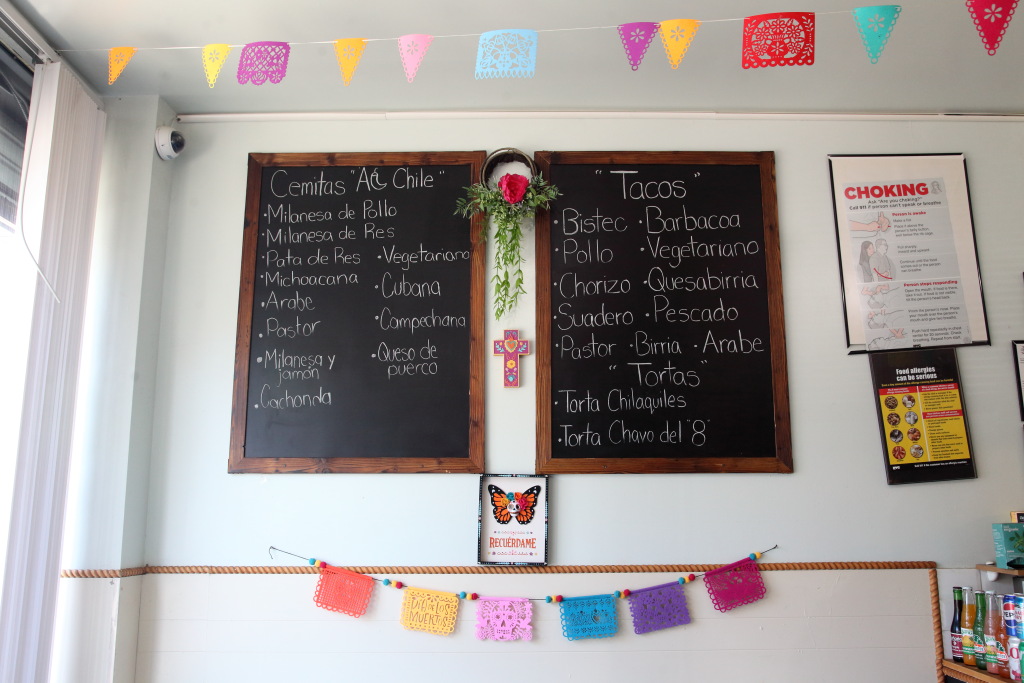 Cemitas "Al Chile"
• Milanesa de Pollo
• Milanesa de Res
• Pata de Res
• Michoacana
• Arabe
• Pastor
• Milanesa y jamón
• Cachonda
• Vegetariano
• Cubana
• Campechana
• Queso de puerco
"Tacos"
• Bistec • Barbacoa
• Pollo • Vegetariano
• Chorizo • Quesabirria
• Suadero • Pescado
• Pastor • Birria • Arabe
"Tortas"
• Torta Chilaquiles
• Torta Chavo del "8"
CHOKING
Ask "Are you choking?"
Call 911 if person can't speak or breathe
Person is awake
Person stops responding
NYC
Food allergies
can be serious
NYC
RECUÉRDAME
DÍA DE LOS
MUERTOS